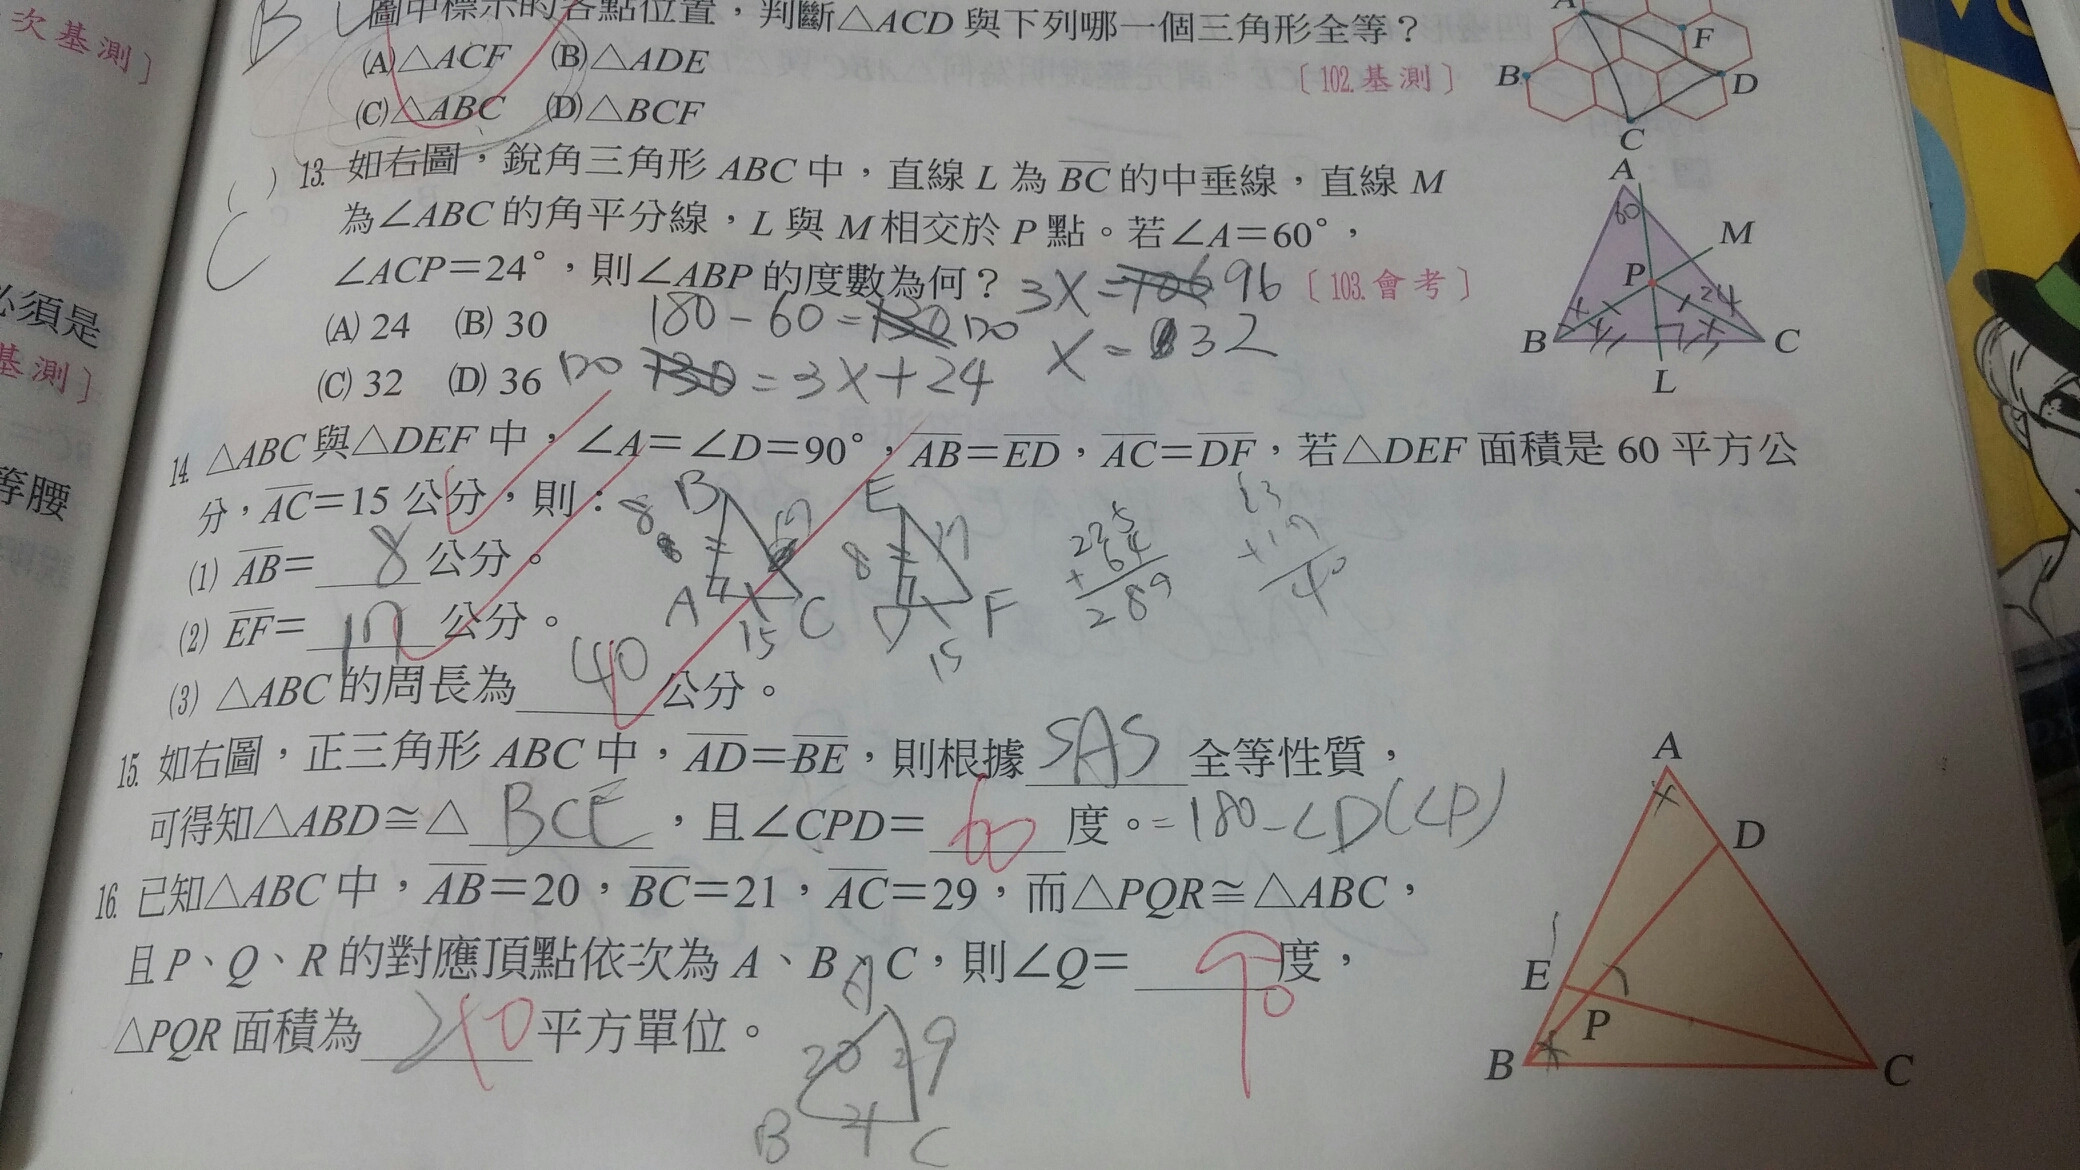 次基測〕
圖中標示的各點位置，判斷△ACD與下列哪一個三角形全等？
(A)△ACF (B)△ADE
〔102.基測〕
(C)△ABC (D)△BCF
A
F
B
D
C
( ) 13. 如右圖，銳角三角形ABC中，直線L為BC的中垂線，直線M
為∠ABC的角平分線，L與M相交於P點。若∠A＝60°，
C
∠ACP＝24°，則∠ABP的度數為何？ 3X＝96 〔103.會考〕
(A) 24 (B) 30 180－60＝120
X＝32
(C) 32 (D) 36 120＝3X＋24
A
60
M
P
24
B
C
L
必須是
基測〕
等腰
14. △ABC與△DEF中，∠A＝∠D＝90°，AB＝ED，AC＝DF，若△DEF面積是60平方公
分，AC＝15公分，則：
(1) AB＝8公分。
(2) EF＝17公分。
(3) △ABC的周長為40公分。
B
8
17
A
15
C
E
8
17
D
15
F
225
+64
289
23
+17
40
15. 如右圖，正三角形ABC中，AD＝BE，則根據SAS全等性質，
可得知△ABD≅△BCE，且∠CPD＝60度。＝180－∠D(∠P)
A
D
E
P
B
C
16. 已知△ABC中，AB＝20，BC＝21，AC＝29，而△PQR≅△ABC，
且P、Q、R的對應頂點依次為A、B、C，則∠Q＝90度，
△PQR面積為210平方單位。
A
20
29
B
21
C